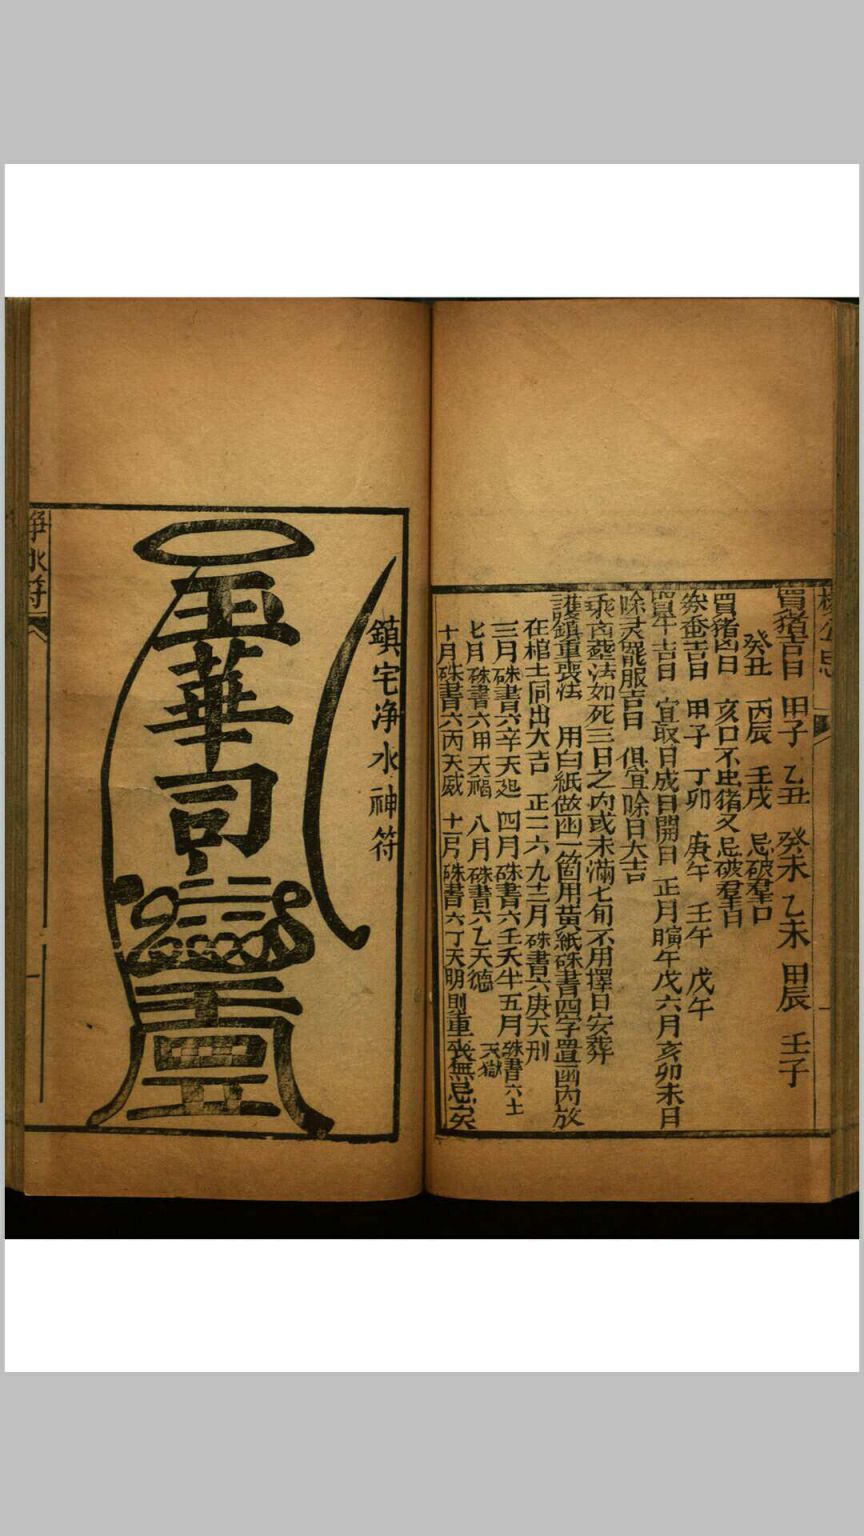 買猪吉日 甲子 乙丑 癸未 乙未 甲辰 壬子
癸丑 丙辰 壬戌 忌破羣日
買猪凶日 亥日不出猪又忌破羣日
吉日 甲子 丁卯 庚午 壬午 戊午
買牛吉日 宜取日成日開日 正月寅午戌六月亥卯未日
除灵罷服吉日 俱宜除日大吉
乘凶塟法如死三日之内或未滿七旬不用擇日安葬
護鎮重喪法 用白紙做函一箇用黄紙硃書四字置函内放
在棺土同出大吉 正三六九十二月硃書六庚天刑
二月硃書六辛天廷 四月硃書六壬天牢 五月硃書六土天獄
七月硃書六甲天福 八月硃書六乙天德
十月硃書六丙天威 十一月硃書六丁天明則重喪無忌矣
鎮宅净水神符
玉華司
净水符